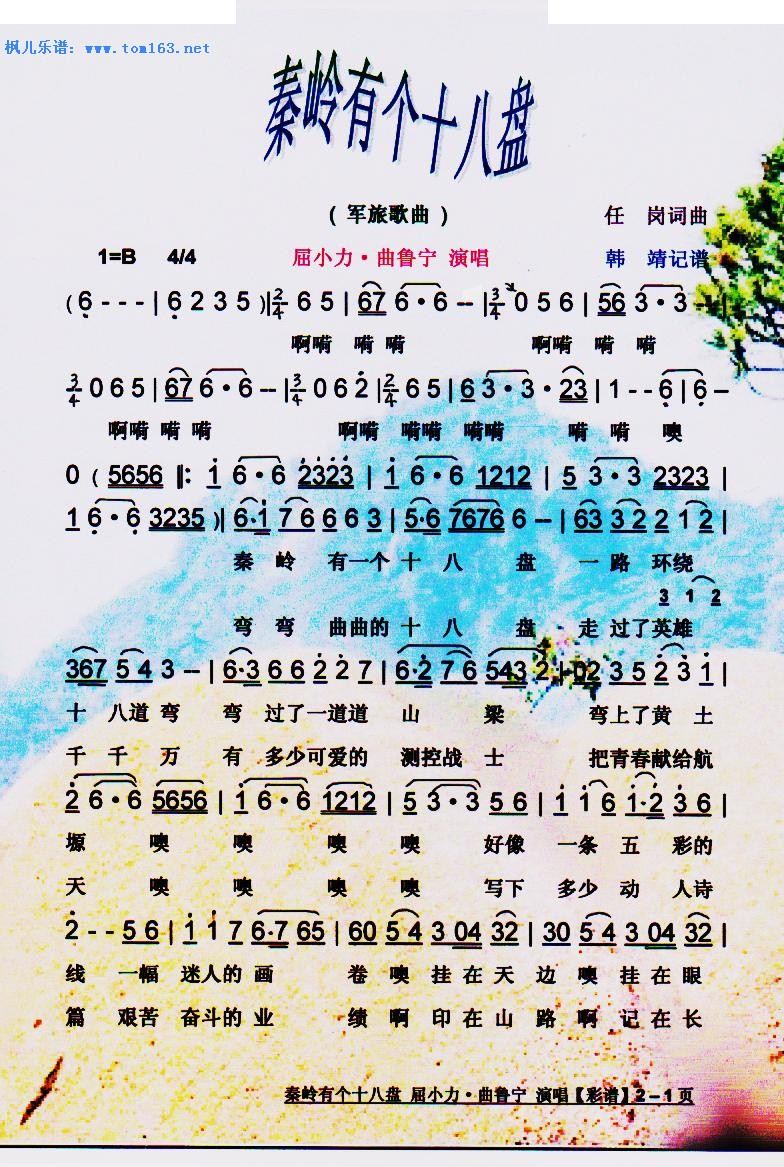 枫儿乐谱：www.tom163.net
秦岭有个十八盘
（ 军旅歌曲 ）
任　岗词曲
1=B　4/4
屈小力·曲鲁宁 演唱
韩　靖记谱
( 6 - - - | 6 2 3 5 )| 2/4 6 5 | 67 6·6 -- | 3/4 0 5 6 | 56 3·3 -- |
啊嗬 嗬 嗬 啊嗬 嗬 嗬
3/4 0 6 5 | 67 6·6 -- | 3/4 0 6 2 | 2/4 6 5 | 6 3·3·23 | 1 -- 6 | 6 --
啊嗬 嗬 嗬 啊嗬 嗬嗬 嗬嗬 嗬 嗬 噢
0 ( 5656 ‖: 1 6·6 2323 | 1 6·6 1212 | 5 3·3 2323 |
1 6·6 3235 )| 6·1 7 6 6 6 3 | 5·6 7676 6 -- | 63 3 2 2 1 2 |
秦 岭 有一个 十 八 盘 一 路 环绕
3 1 2
弯 弯 曲曲的 十 八 盘 走 过了英雄
367 5 4 3 -- | 6·3 6 6 2 2 7 | 6·2 7 6 543 2 | 02 3 5 2 3 1 |
十 八道 弯 弯 过了一道道 山 梁 弯上了黄 土
千 千 万 有 多少可爱的 测控战 士 把青春献给航
2 6·6 5656 | 1 6·6 1212 | 5 3·3 5 6 | 1 1 6 1·2 3 6 |
塬 噢 噢 噢 噢 好像 一条 五 彩的
天 噢 噢 噢 噢 写下 多少 动 人诗
2 - - 5 6 | 1 1 7 6·7 65 | 60 5 4 3 04 32 | 30 5 4 3 04 32 |
线 一幅 迷人的 画 卷 噢 挂 在 天 边 噢 挂 在 眼
篇 艰苦 奋斗的 业 绩 啊 印 在 山 路 啊 记 在 长
秦岭有个十八盘 屈小力·曲鲁宁 演唱【彩谱】2－1页